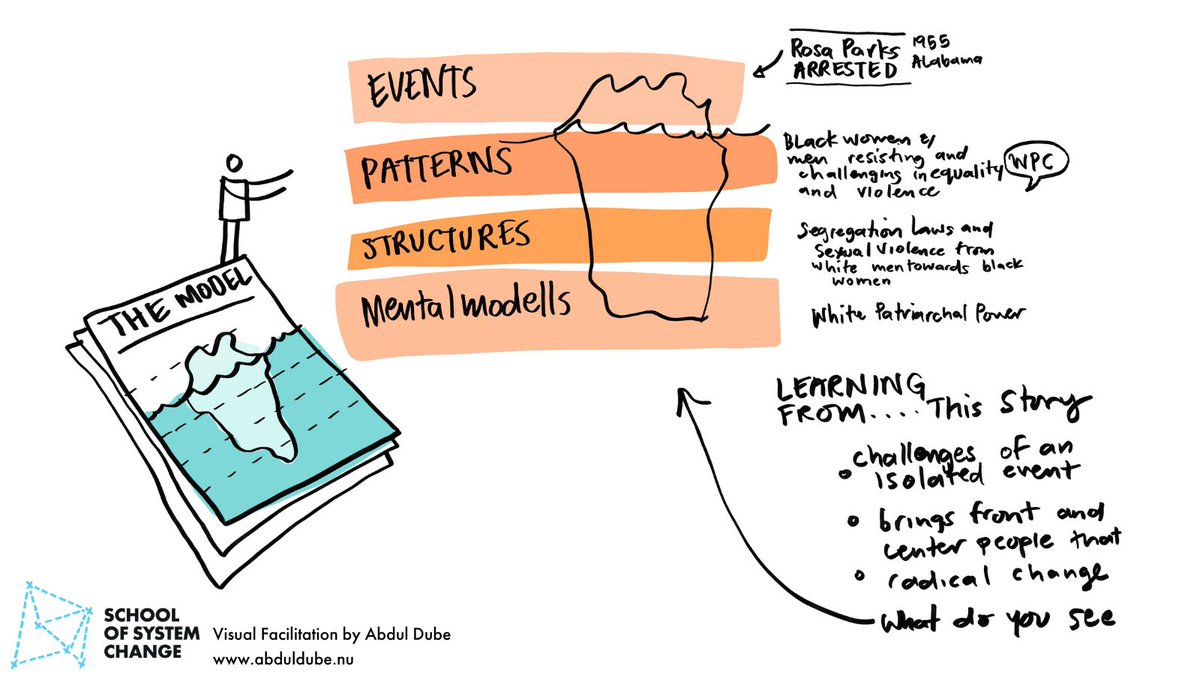 EVENTS
Rosa Parks
ARRESTED
1955
Alabama
PATTERNS
Black women &
men resisting and
challenging inequality
and violence
WPC
STRUCTURES
Segregation Laws and
Sexual Violence from
white men towards black
women
Mental modells
White Patriarchal Power
THE MODEL
LEARNING
FROM.... This Story
challenges of an
• isolated event
• brings front and
center people that
• radical change
What do you see
SCHOOL
OF SYSTEM
CHANGE
Visual Facilitation by Abdul Dube
www.abduldube.nu